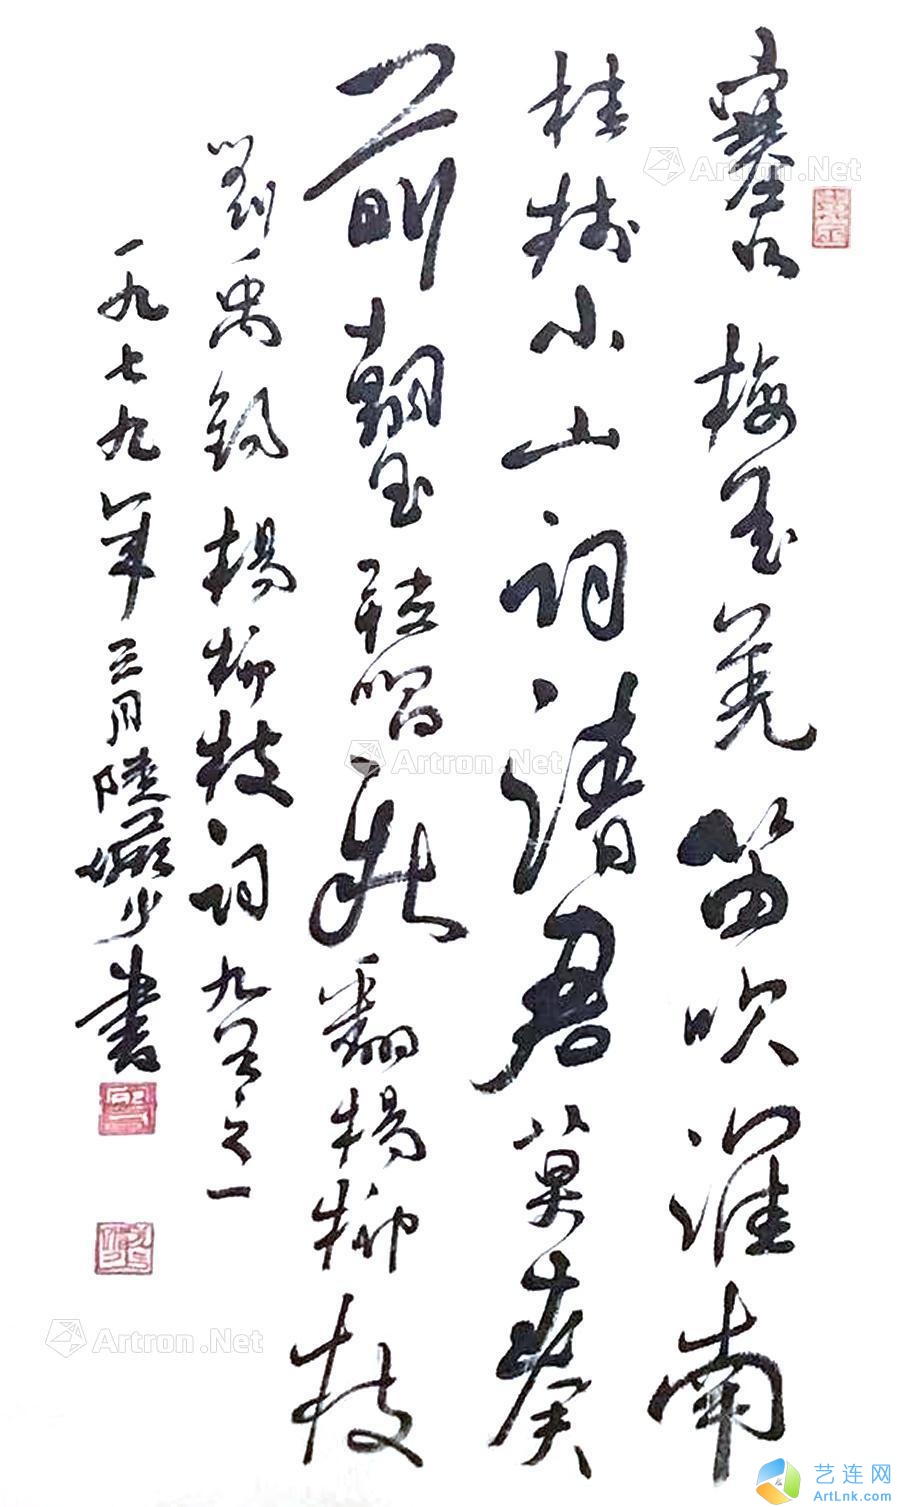 塞北梅花羌笛吹淮南
桂樹小山詞請君莫奏
前朝曲聽唱新翻楊柳枝
劉禹錫楊柳枝詞九首之一
一九七九年三月陸儼少書
Artron.Net
Artron.Net
Artron.Net
艺连网
ArtLnk.com